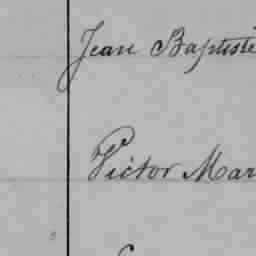 Jean Baptiste
Victor Mar